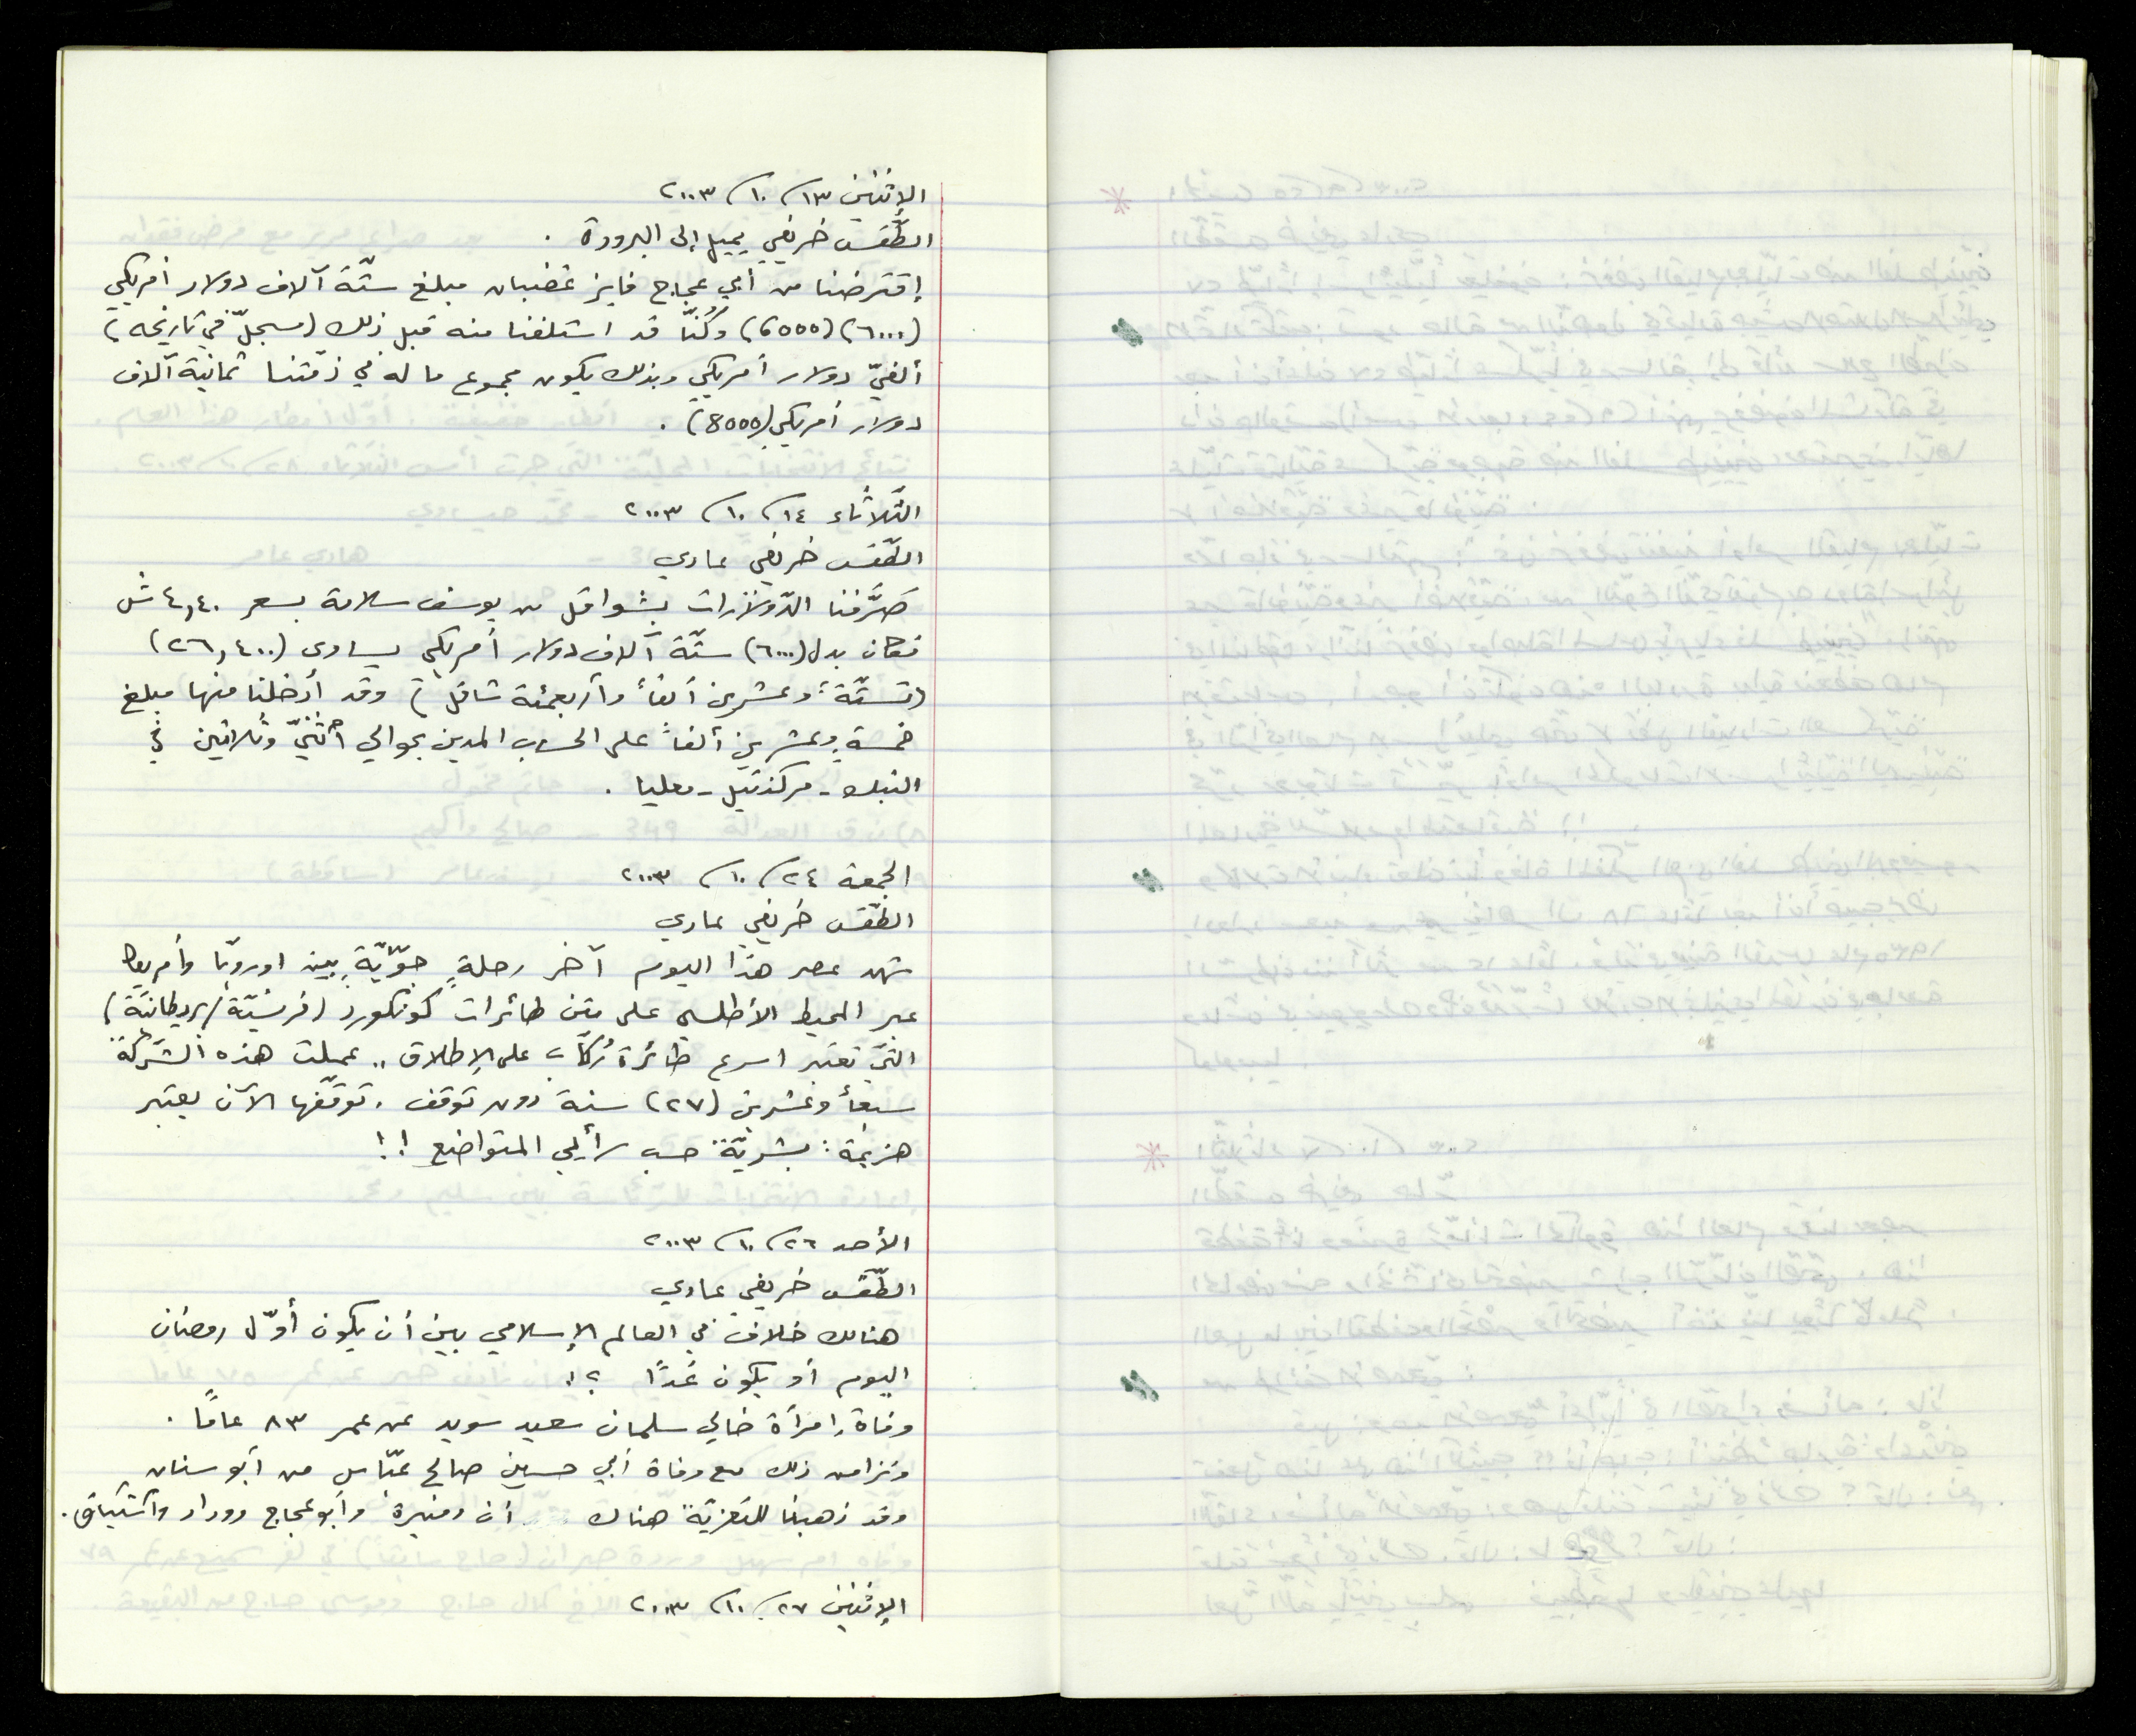 الإثنين ١٣/ ١٠/ ٢٠٠٣
الطَّقس خريفي يميل إلى البرودة .
إقترضنا من أبي عجاج فايز غضبان مبلغ ستّة آلاف دولار أمريكي
(٦٠٠٠) (6000) وكُنَّا قد استلفنا منه قبل ذلك (مسجلّ في تاريخه)
ألفيّ دولار أمريكي وبذلك يكون مجموع ما له في ذمّتنا ثمانية آلاف
دولار أمريكي (8000) .
الثّلاثاء ١٤/ ١٠/ ٢٠٠٣
الطّقس خريفي عادي
صَرَّفنا الدّولارات بشواقل من يوسف سلامة بسعر ٤,٤٠ ش
فكان بدل (٦٠٠٠) ستّة آلاف دولار أمريكي يساوي (٢٦,٤٠٠)
(ستّة وعشرين ألفاً وأربعمئة شاقل) وقد أدخلنا منها مبلغ
خمسة وعشرين ألفاً على الحساب المدين بحوالي اثنيّ وثلاثين في
البنك - مركنتيل - معليا .
الجمعة ٢٤/ ١٠/ ٢٠٠٣
الطّقس خريفي عادي
شهد عصر هذا اليوم آخر رحلةٍ جوّيّةٍ بين اوروبّا وأمريكا
عبر المحيط الأطلسي على متن طائرات كونكورد (فرنسيّة/بريطانيّة)
التي تعتبر اسرع طائرة رُكّاب على الإطلاق .. عملت هذه الشّركة
سبعاً وعشرين (٢٧) سنة دون توقف . توقّفها الآن يعتبر
هزيمة : بشريّة حسب رأيي المتواضع !!
الأحد ٢٦/ ١٠/ ٢٠٠٣
الطّقس خريفي عادي
هنالك خلاف في العالم الإسلامي بين أن يكون أوّل رمضان
اليوم أو يكون غدًا ؟!
وفاة إمرأة خالي سلمان سعيد سويد عن عمر ٨٣ عامًا .
وتزامن ذلك مع وفاة أبي حسين صالح عبّاس من أبو سنان
وقد ذهبنا للتعزيّة هناك أنا ومنيرة وأبو عجاج ووداد واشتياق .
الإثنين ٢٧/ ١٠/ ٢٠٠٣